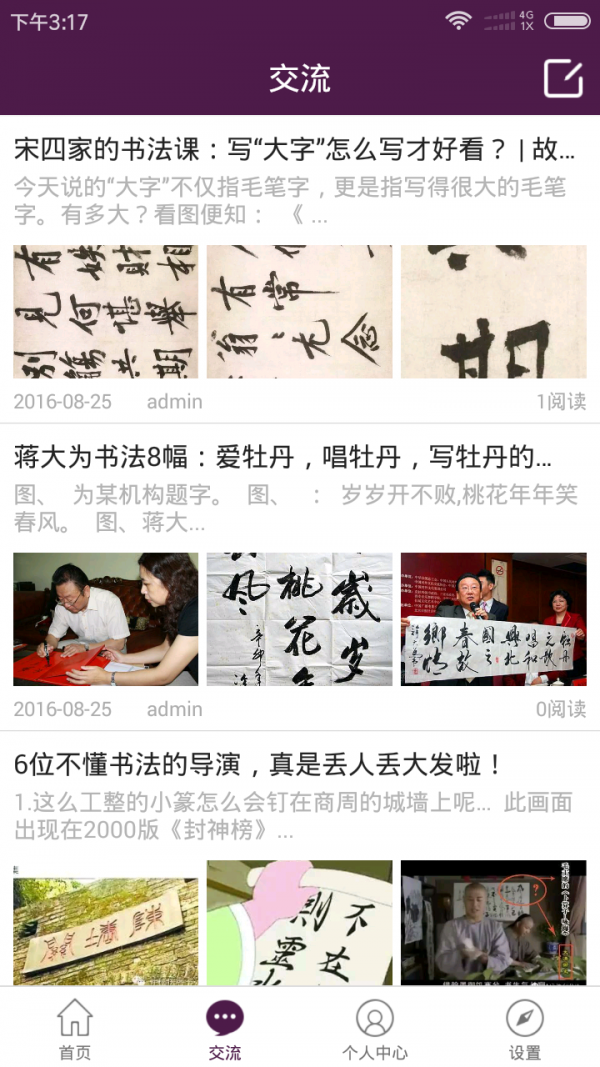 下午3:17
4G
1X
交流
宋四家的书法课：写“大字”怎么写才好看？ | 故...
今天说的“大字”不仅指毛笔字，更是指写得很大的毛笔
字。有多大？看图便知： 《 ...
有 娱 財 相
見 何 堪 舉
别 觴 共 期
有 常
翁 无 念
期
2016-08-25 admin 1阅读
蒋大为书法8幅：爱牡丹，唱牡丹，写牡丹的...
图、 为某机构题字。 图、 ： 岁岁开不败,桃花年年笑
春风。 图、蒋大...
歲岁
桃花年
风
2016-08-25 admin 0阅读
6位不懂书法的导演，真是丢人丢大发啦！
1.这么工整的小篆怎么会钉在商周的城墙上呢... 此画面
出现在2000版《封神榜》...
不在
則靈
?
首页
交流
个人中心
设置